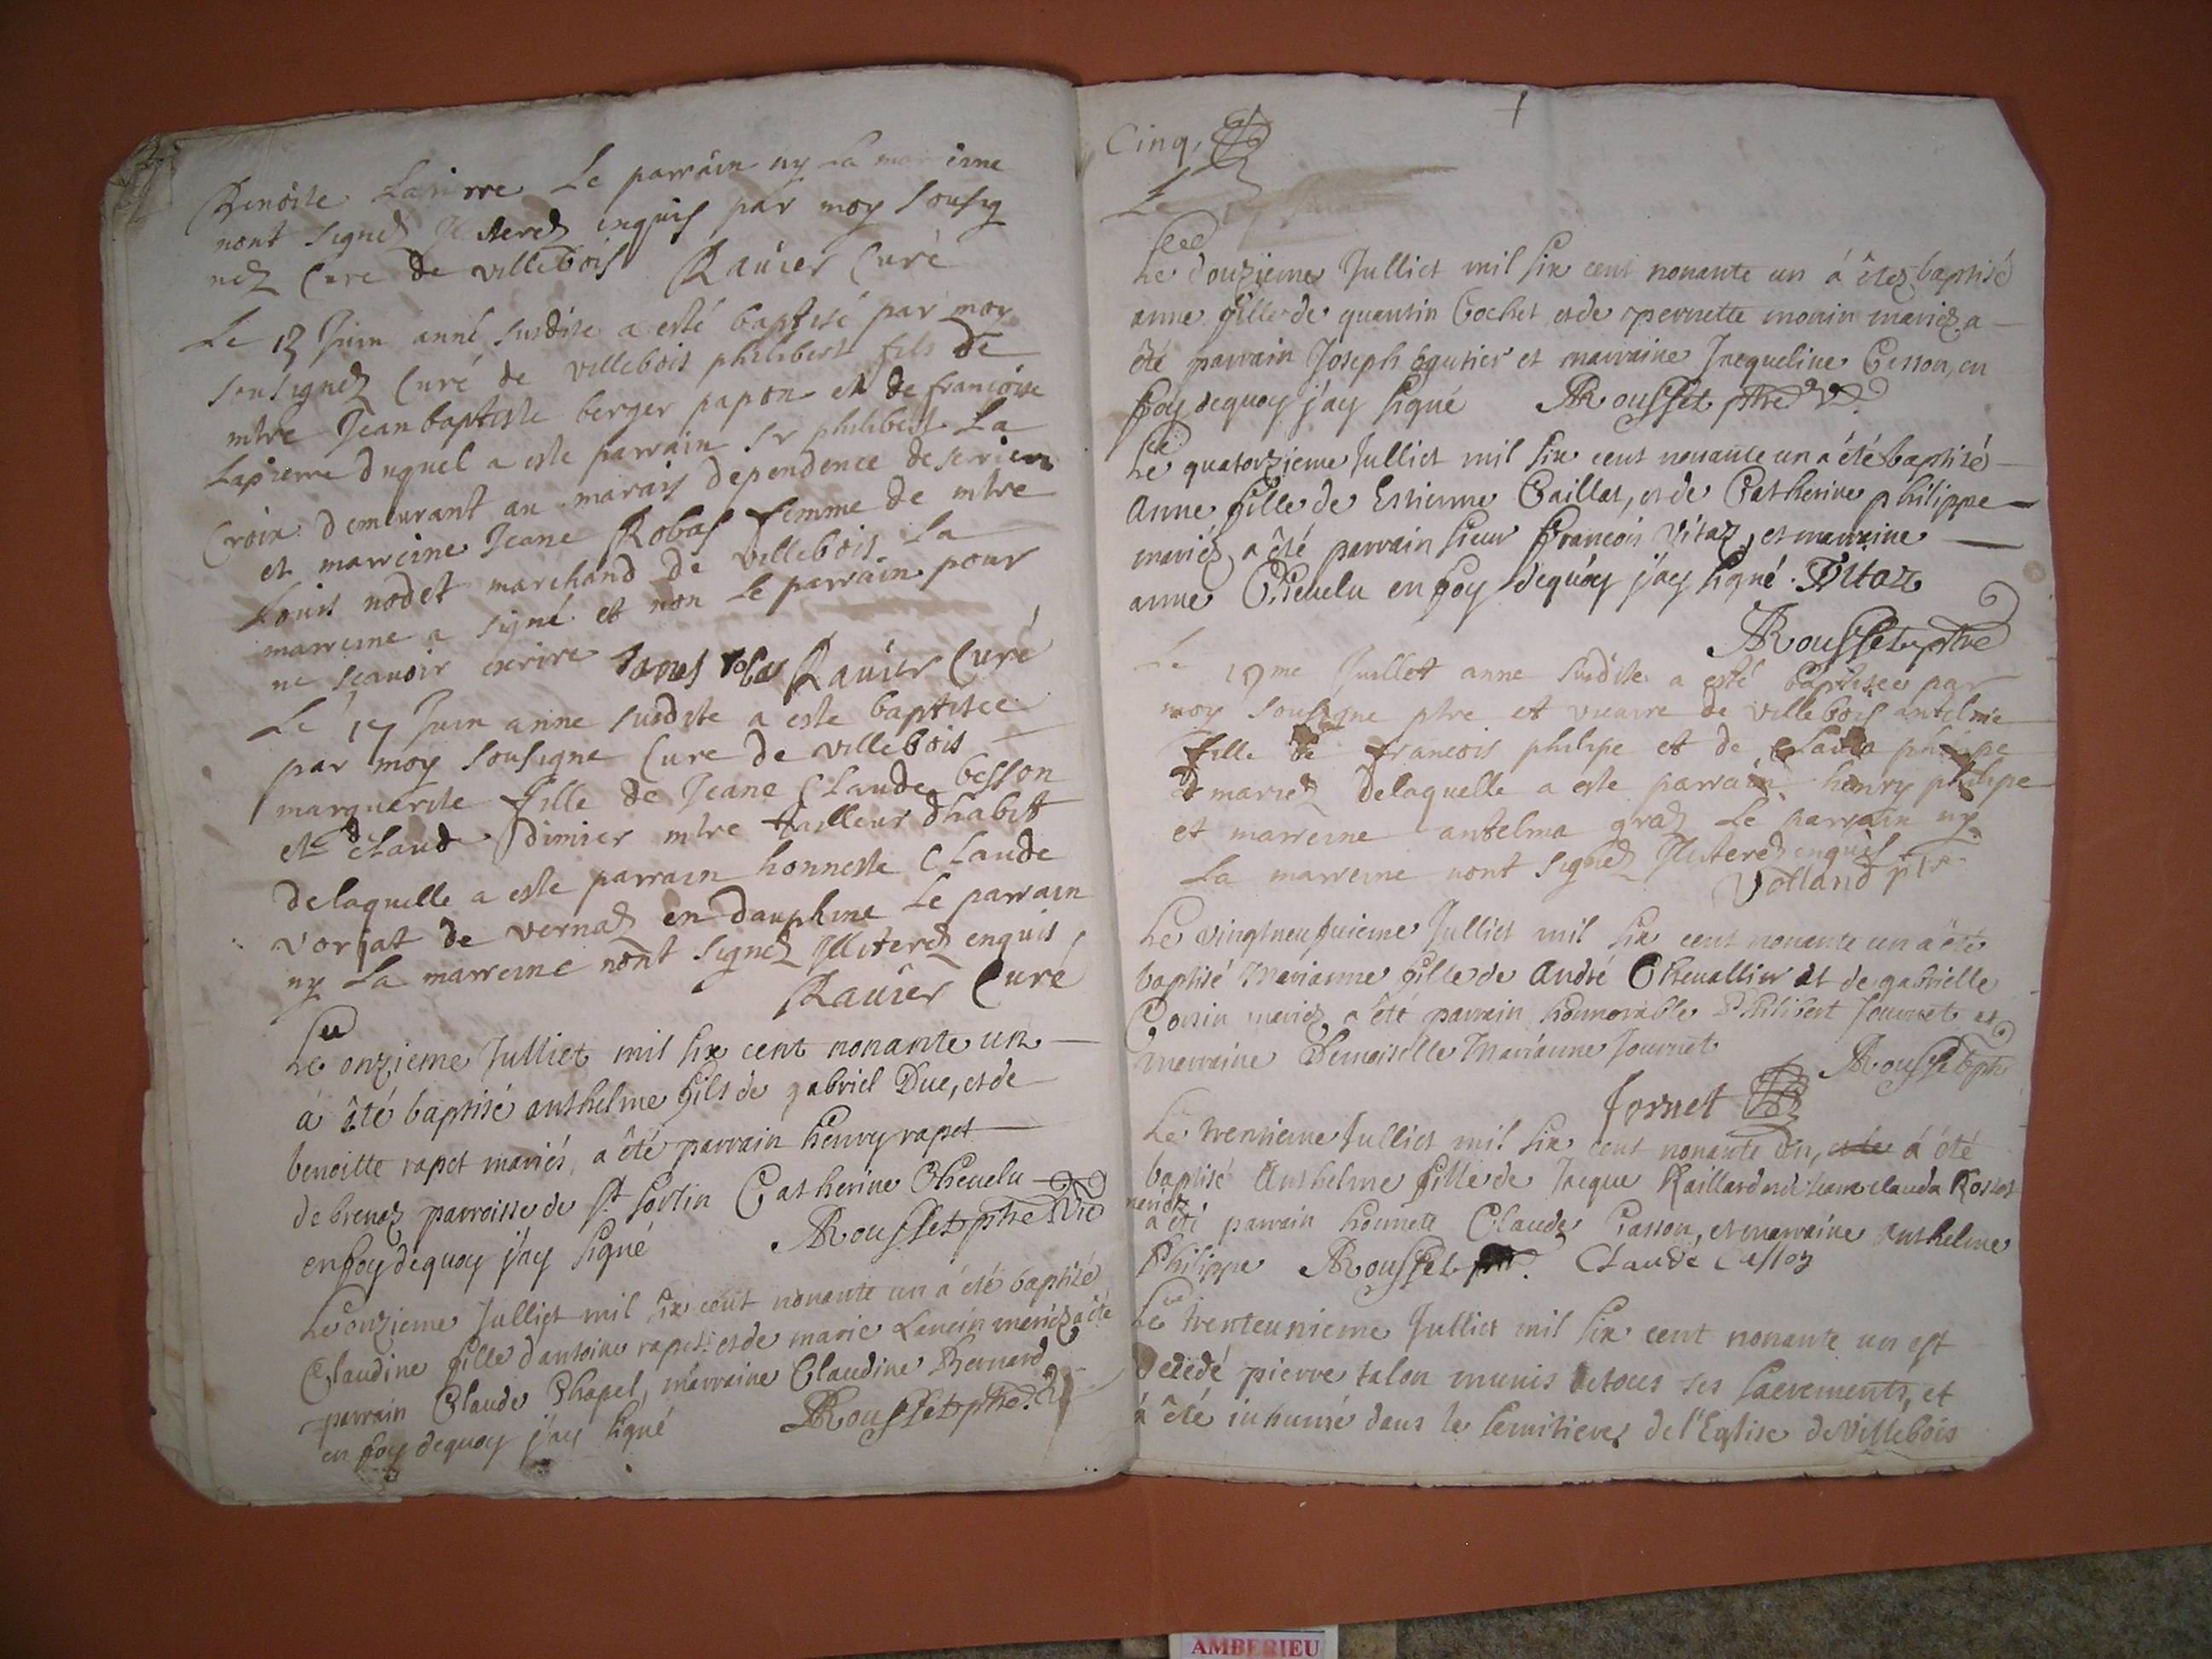 Benoite Lapierre Le parrain ny La marreine
nont signéz Illiterez enquis par moy sousig
néz Cure de villebois Ravier Curé
Le 13 Juin anné susdite a esté baptisé par moy
sousignéz Curé de villebois philibert fils de
mtre Jean baptiste berger papon et de francoise
Lapierre duquel a este parrain sr philibert La
Croix demeurant au marais dependence de serrieres
et marreine Jeane Robas femme de mtre
Louis nodet marchand de villebois La
marreine a signé et non Le parrain pour
ne scavoir escrire Ravier Curé
Le 17 Juin anne susdite a este baptisee
par moy sousigne Cure de villebois
marguerite fille de Jeane Claude besson
et Claude dimier mtre tailleur dhabit
delaquelle a este parrain honneste Claude
vorjat de vernaz en dauphine Le parrain
ny La marreine nont signéz Illiterez enquis
Ravier Curé
Le onzieme Julliet mil six cent nonante un
á été baptisé anthelme fils de gabriel Duc, et de
benoitte rapet mariés, a été parrain henry rapet
de brenaz parroisse de St Sorlin Catherine Chevelu
en foy dequoy j'ay signé Rousset ptre vic
Le onzieme Julliet mil six cent nonante un a été baptisé
Claudine fille d'antoine rapet et de marie mariéz a été
parrain Claude Chapel, marraine Claudine Bernard
en foy dequoy j'ay signé Rousset ptre
Cinq.
Le
Le douzieme Julliet mil six cent nonante un á étéz baptisé
anne fille de quantin Cochet et de pernette monin mariéz a
été parrain Joseph et marraine Jacqueline Cesson, en
foy dequoy j'ay signé Rousset ptre v.
Le quatorzieme Julliet mil six cent nonante un a été baptisé
Anne fille de Estienne Caillat, et de Catherine philippe
mariéz a été parrain sieur francois Vitaz, et marraine
anne Chevelu en foy dequoy j'ay signé. Vitaz
Rousset ptre
Le 19me Juillet anne susdite a esté baptisee par
moy sousigne ptre et vicaire de villebois antelmie
fille de francois philipe et de Clauda philipe
mariez delaquelle a este parrain henry philipe
et marreine antelma graz Le parrain ny
La marreine nont signéz Illiterez enquis
Volland ptre
Le vingtneufvieme Julliet mil six cent nonante un a été
baptisé Marianne fille de André Chevallier et de gabrielle
Coisin mariéz a été parrain honnorable Philibert Journet et
marraine Demoiselle Marianne Journet
Rousset ptr
Jornet
Le trentieme Julliet mil six cent nonante un, á été
baptisé Anthelme fille de Jacque Raillard et de Jeane clauda Rosset
mariéz
a été parrain honnete Claude Casson, et marraine Anthelme
Philippe Rousset ptr. Claude Casson
Le trenteunieme Julliet mil six cent nonante un est
decedé pierre talon munis de tous ses sacrements, et
á été inhumé dans le semitieres de l'Eglise de Villebois
AMBERIEU